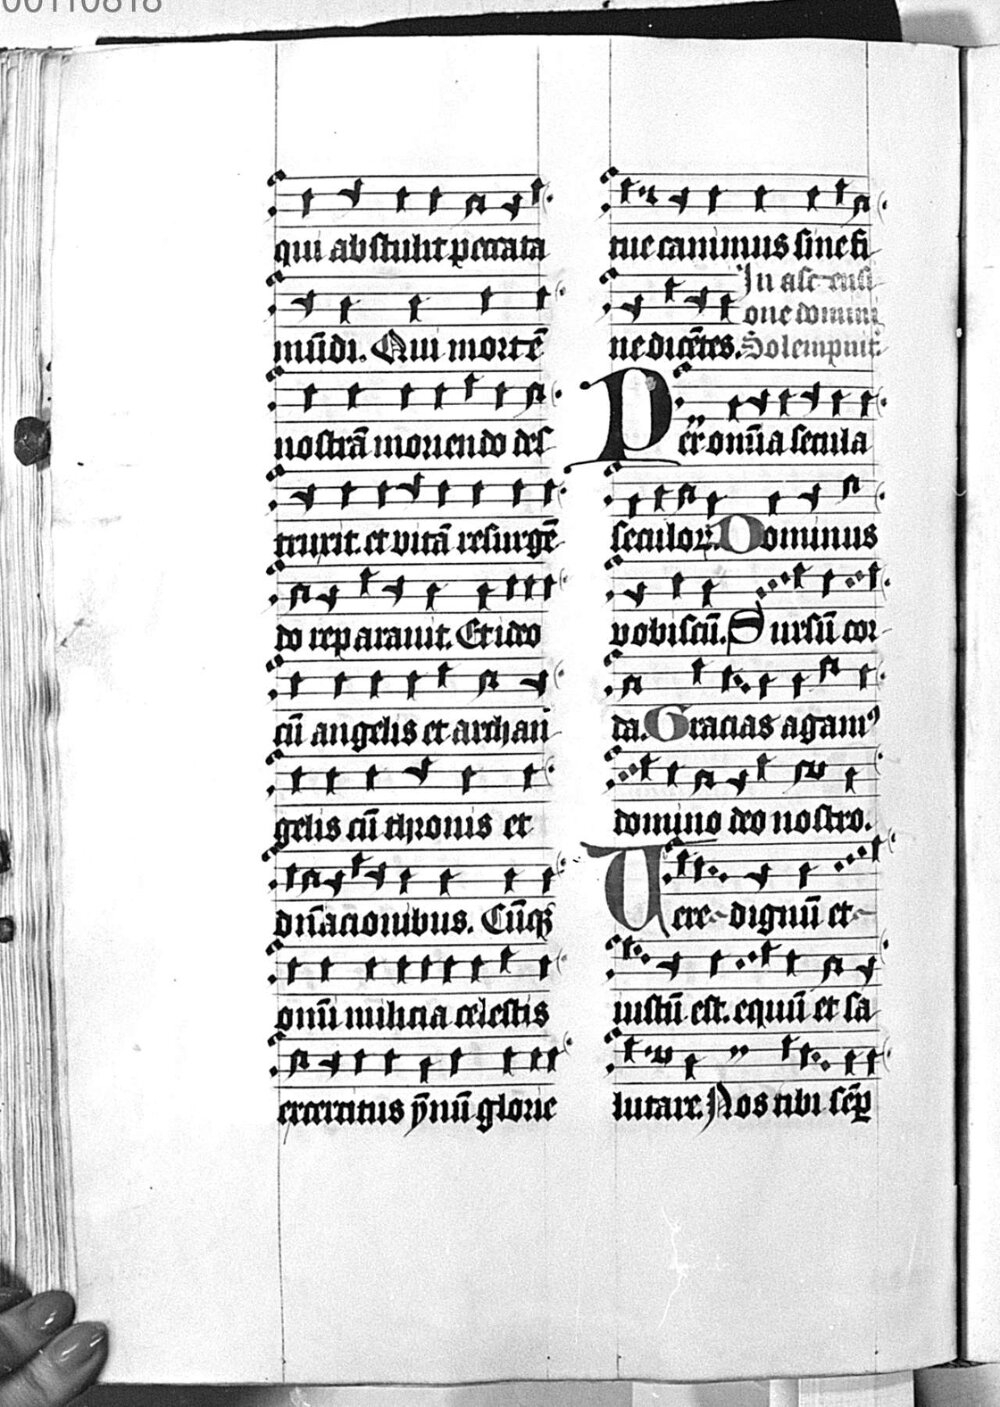 00110818
qui abstulit peccata
mūdi. Qui mortē
nostrā moriendo des
truxit. et vitā resurgē
do reparauit. Et ideo
cū angelis et archan
gelis cū thronis et
dn̄acionibus. Cūqꝫ
omī milicia celestis
exercitus ẏmnū glorie
tue canimus sine fi
ne dicētes.
In ascensi
one domini
Solempnit᷑
Per om̄ia secula
seculoꝝ. Dominus
vobiscū. Sursū cor
da. Gracias agamꝰ
domino deo nostro.
Uere dignū et
iustū est. equū et sa
lutare. Nos tibi sēꝑ